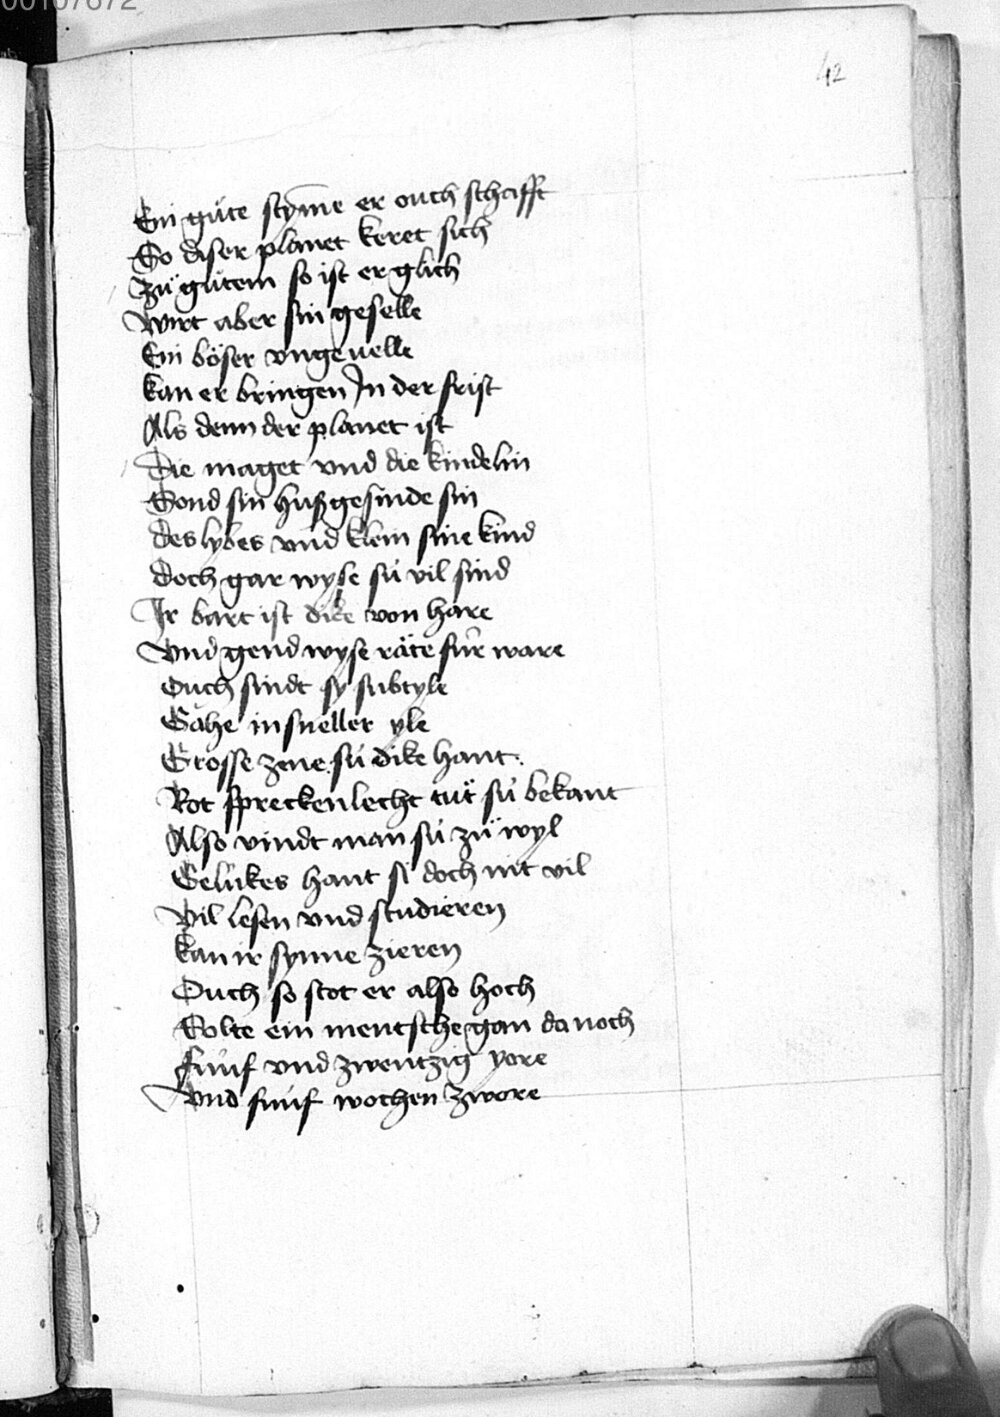 00107672
42
Ein gůte stÿm̄e er ouch schafft
So diser planet keret sich
Zů gůtem so ist er glich
Wirt aber sin geselle
Ein böser vngeuelle
kan er bringen In der frist
Als denn der planet ist
Die maget vnd die kindelin
Sond sin hußgesinde sin
des lybes vnd klein sine kind
doch gar wyse sú vil sind
Ir bart ist dike von hare
Vnd gend wyse räte fúr ware
Ouch sindt sy subtyle
Gähe in sneller yle
Grosse zene sú dike hant
Rot spreckenlecht tůt sú bekant
Also vindt man sú zů wyl
Gelúkes hant si doch nit vil
Vil lesen vnd studieren
kan ir synne zieren
Ouch so stot er also hoch
Solte ein mentsche gan da noch
fúnf vnd zwentzig yore
Vnd fúnf wochen zwore